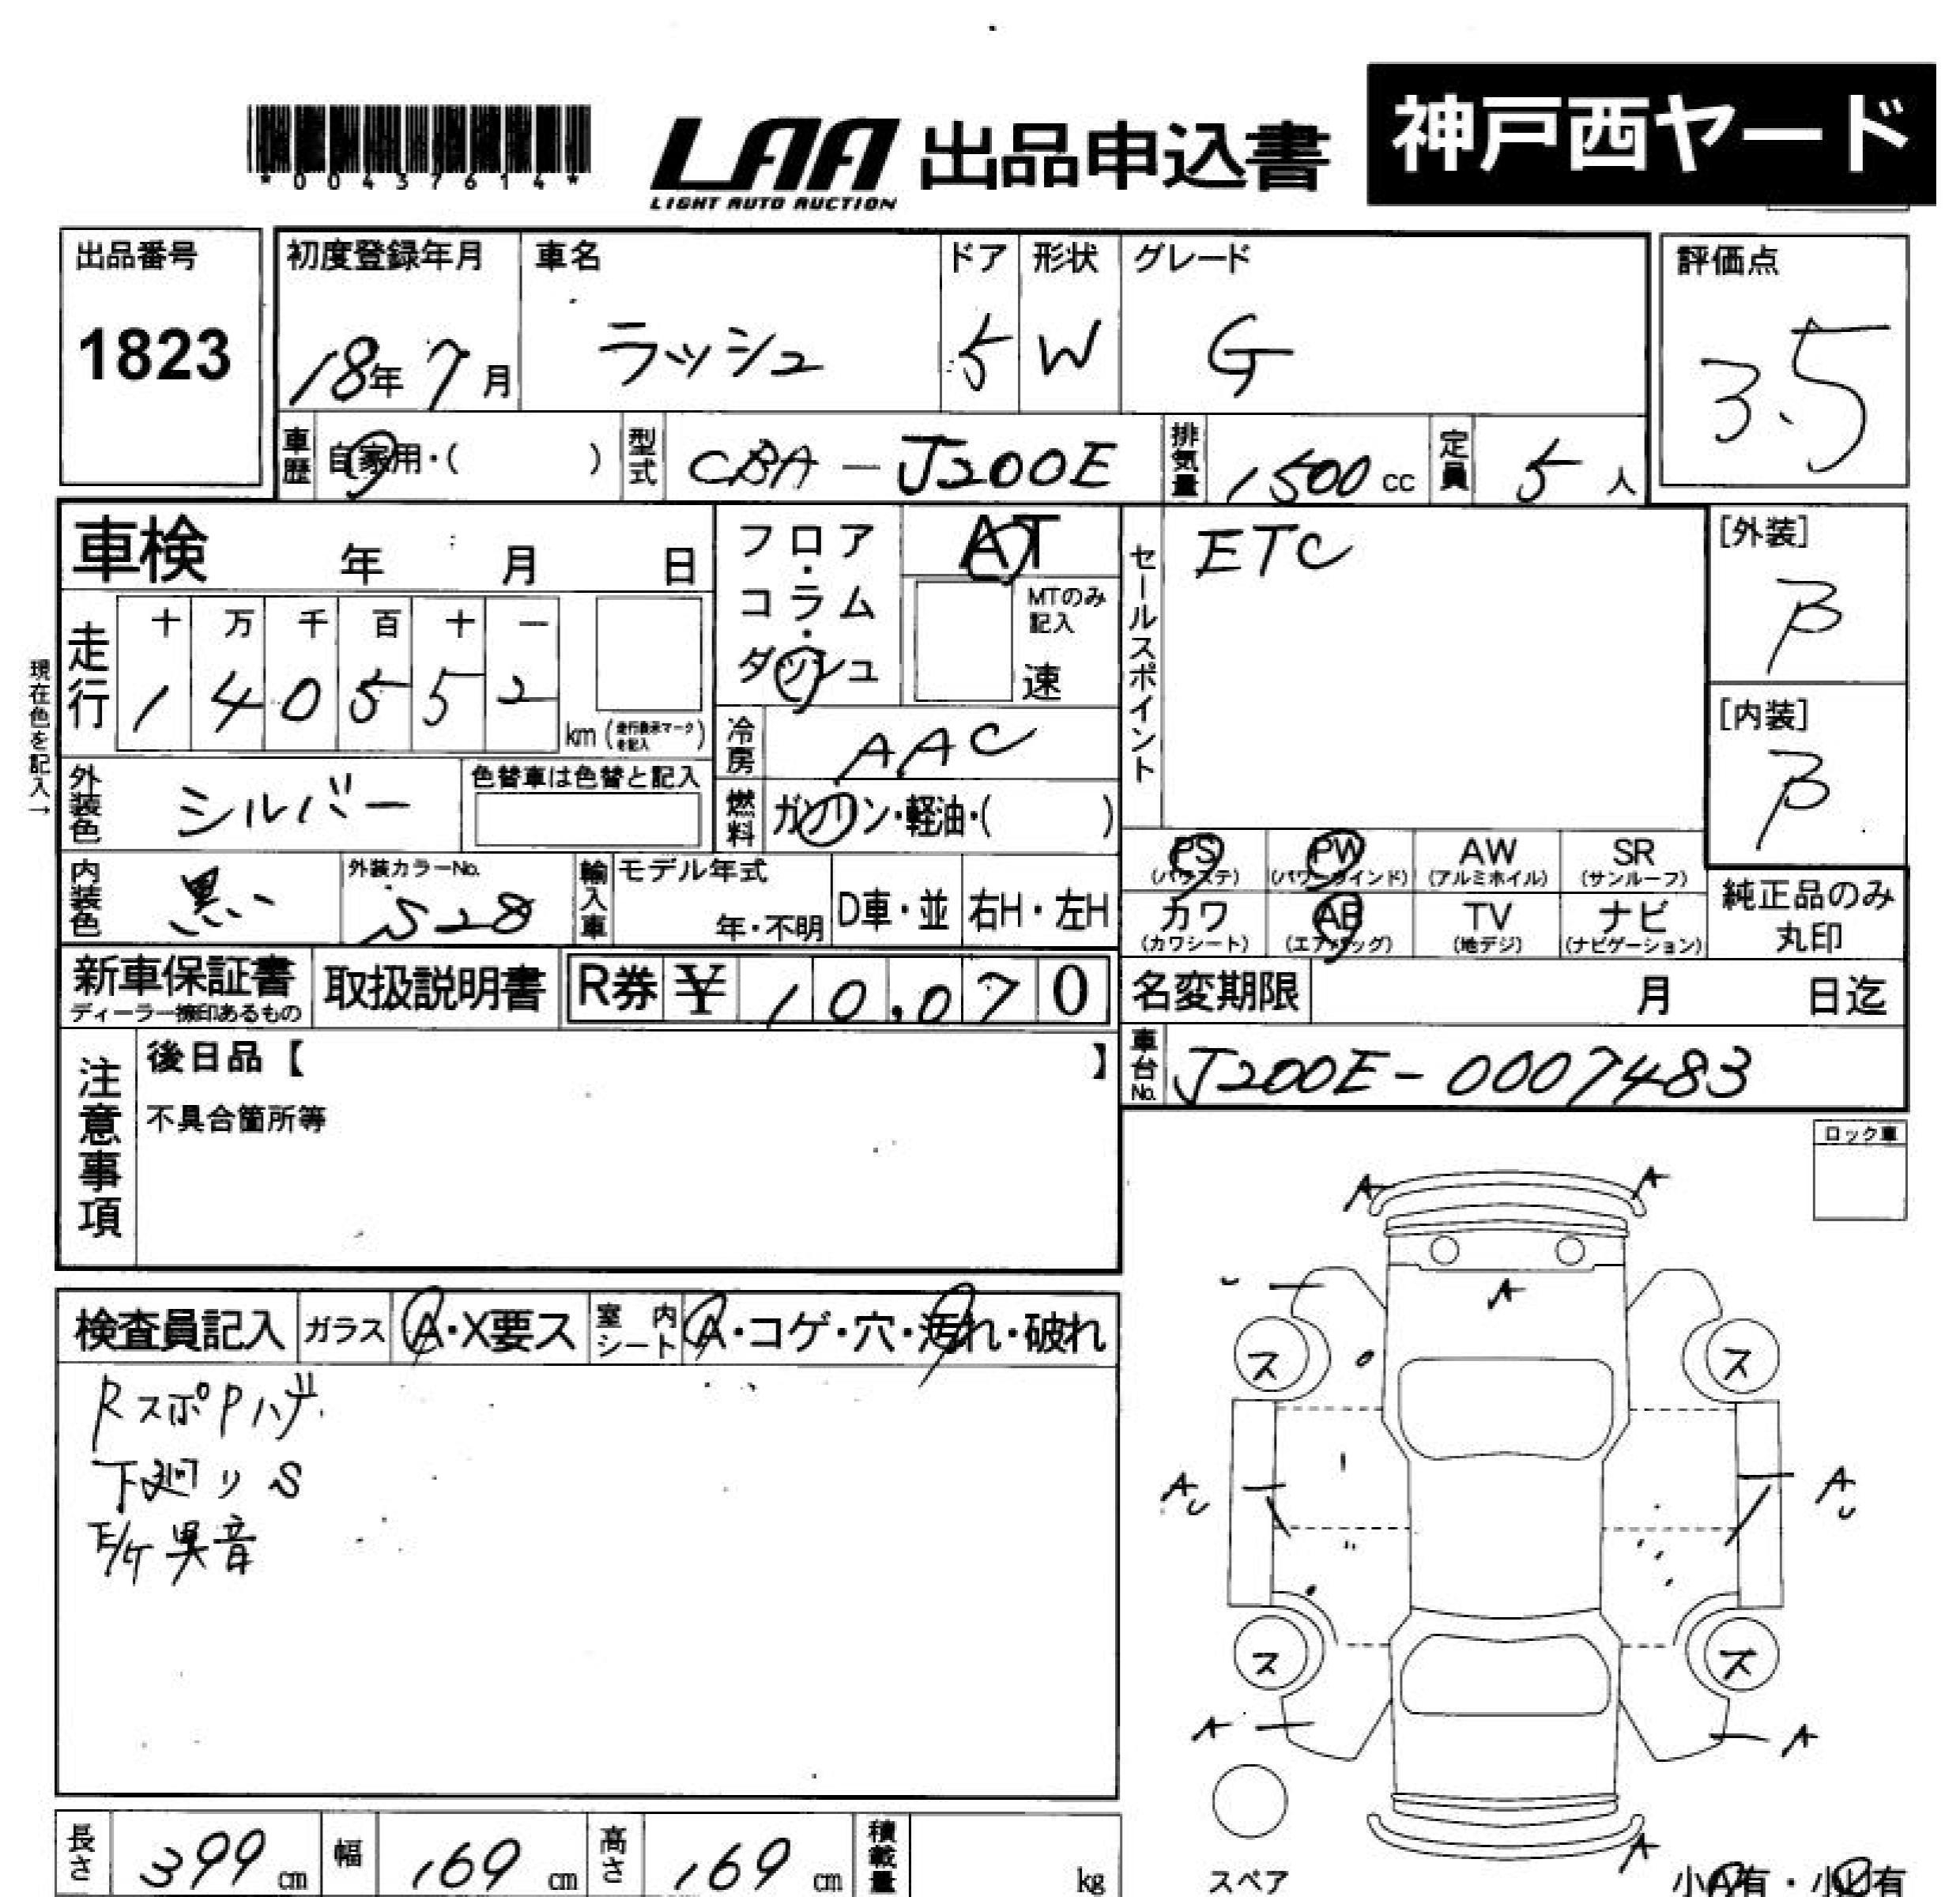 *00437614*
LAA
LIGHT AUTO AUCTION
出品申込書
神戸西ヤード
出品番号
1823
初度登録年月
18年7月
車名
ラッシュ
ドア
5
形状
W
グレード
G
評価点
3.5
車歴
自家用・( )
型式
CBA-J200E
排気量
1500cc
定員
5人
車検 年 月 日
フロア・コラム・ダッシュ
AT
MTのみ記入
速
セールスポイント
ETC
[外装]
β
[内装]
β
現在色を記入→
走行
十 万 千 百 十 一
1 4 0 5 5 2
km (走行表示マークを記入)
冷房
AAC
外装色
シルバー
色替車は色替と記入
燃料
ガソリン・軽油・( )
内装色
黒
外装カラーNo.
S28
輸入車
モデル年式
年・不明
D車・並
右H・左H
PS (パワステ)
PW (パワーウインド)
AW (アルミホイル)
SR (サンルーフ)
カワ (カワシート)
AB (エアバッグ)
TV (地デジ)
ナビ (ナビゲーション)
純正品のみ丸印
新車保証書
ディーラー捺印あるもの
取扱説明書
R券 ¥ 10,070
名変期限 月 日迄
車台No.
J200E-0007483
注意事項
後日品【 】
不具合箇所等
ロック車
検査員記入
ガラス
A・X要ス
室内シート
A・コゲ・穴・汚れ・破れ
RスポPハゲ
下廻りS
異音
A A
A
ス ス
A A
ス ス
A A
A
スペア
小A有・小U有
長さ 399cm
幅 169cm
高さ 169cm
積載量 kg